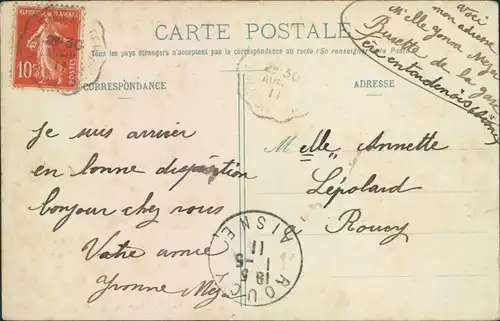 RÉPUBLIQUE FRANÇAISE
10c
POSTES
CARTE POSTALE
Tous les pays étrangers n'acceptent pas la correspondance au recto (Se renseigner à la Poste)
CORRESPONDANCE
ADRESSE
Voci
mon adresse
Melle Yvonne
Buvette de la gare
Fère en tardenois Aisne
30
AVR
11
Je suis arriver
en bonne disposition
bonjour chez vous
Votre amie
Yvonne
Melle Annette
Lépolard
Roucy
ROUCY
AISNE
18
1-5
11